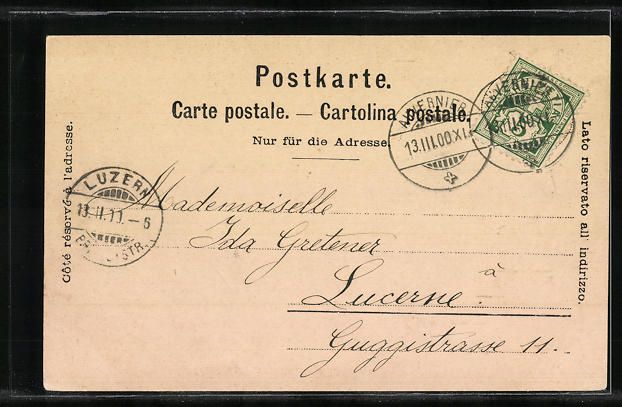 Postkarte.
Carte postale. — Cartolina postale.
Nur für die Adresse.
Côté réservé à l'adresse.
Lato riservato all indirizzo.
AUVERNIER
13.III.00.XI
AUVERNIER
5
LUZERN
Mademoiselle
Ida Gretener
à
Lucerne.
Guggistrasse 11.